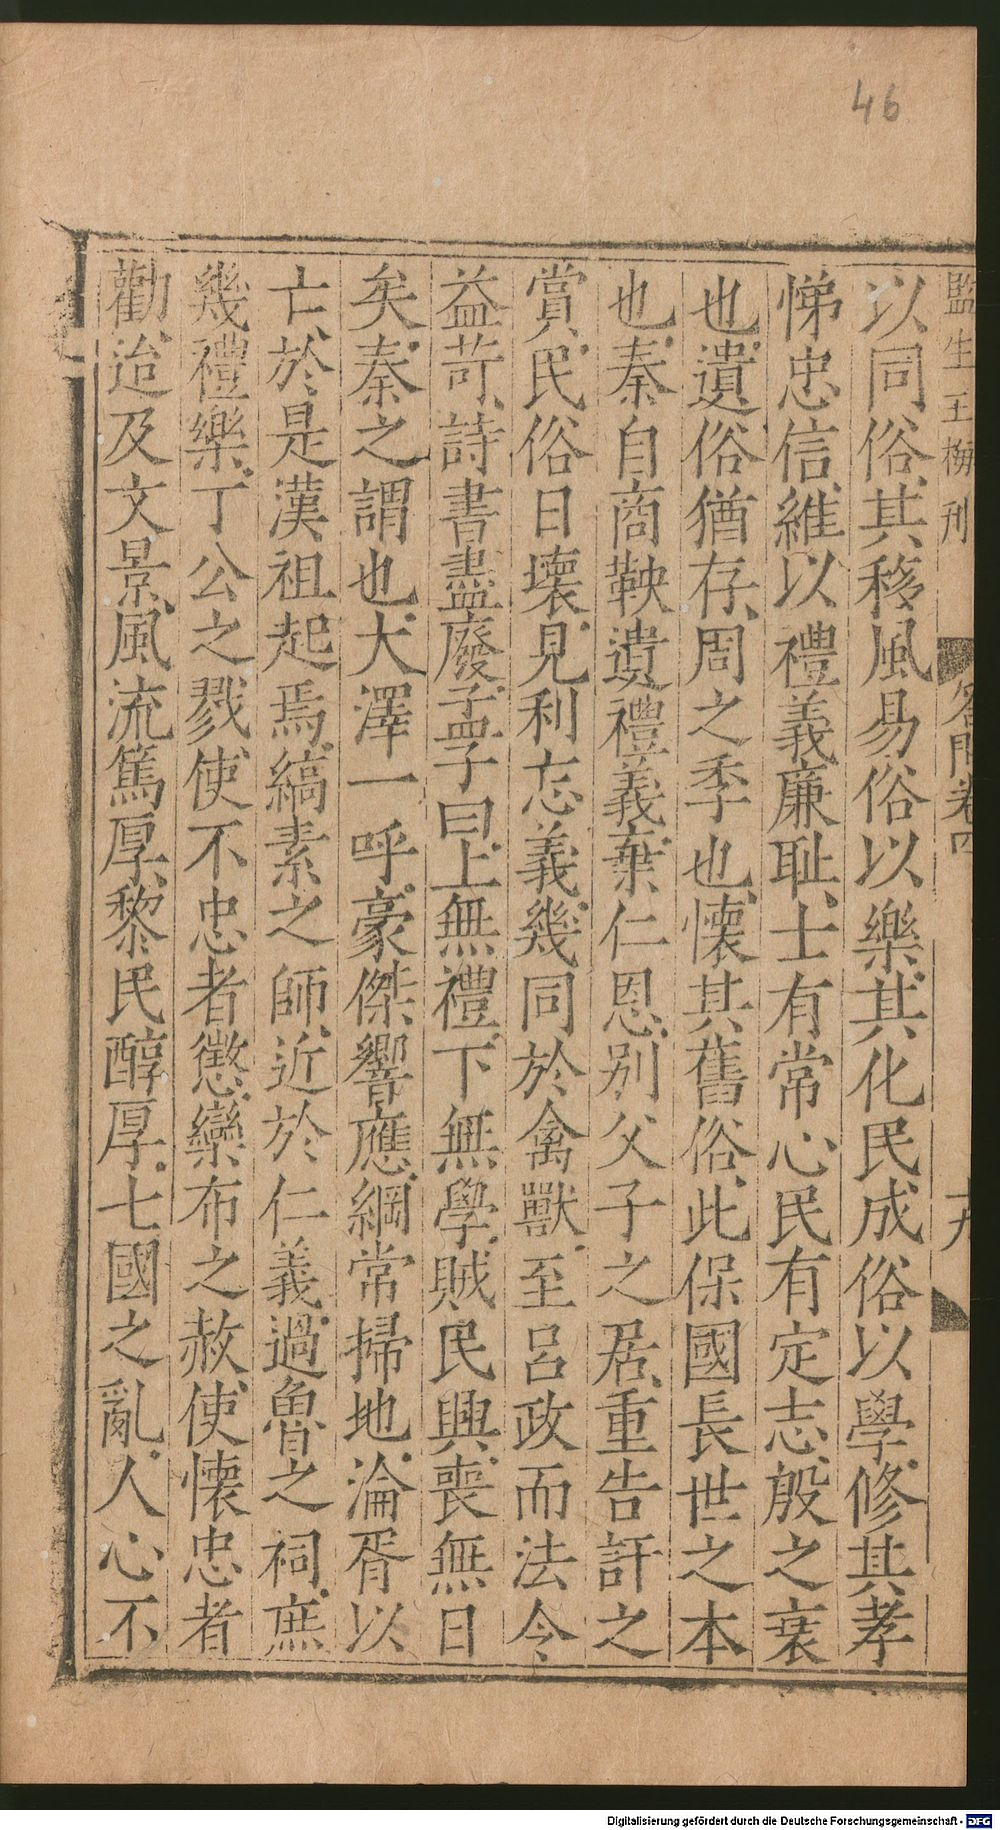 46
監生王栁刋
答問卷四
十九
以同俗其移風易俗以樂其化民成俗以學修其孝
悌忠信維以禮義廉耻士有常心民有定志殷之衰
也遺俗猶存周之季也懷其舊俗此保國長世之本
也秦自商鞅遺禮義棄仁恩别父子之居重告訐之
賞民俗日壞見利忘義幾同於禽獸至呂政而法令
益苛詩書盡廢孟子曰上無禮下無學賊民興喪無日
矣秦之謂也大澤一呼豪傑響應綱常掃地淪胥以
亡於是漢祖起焉縞素之師近於仁義過魯之祠庶
幾禮樂丁公之戮使不忠者懲欒布之赦使懷忠者
勸迨及文景風流篤厚黎民醇厚七國之亂人心不
Digitalisierung gefördert durch die Deutsche Forschungsgemeinschaft - DFG